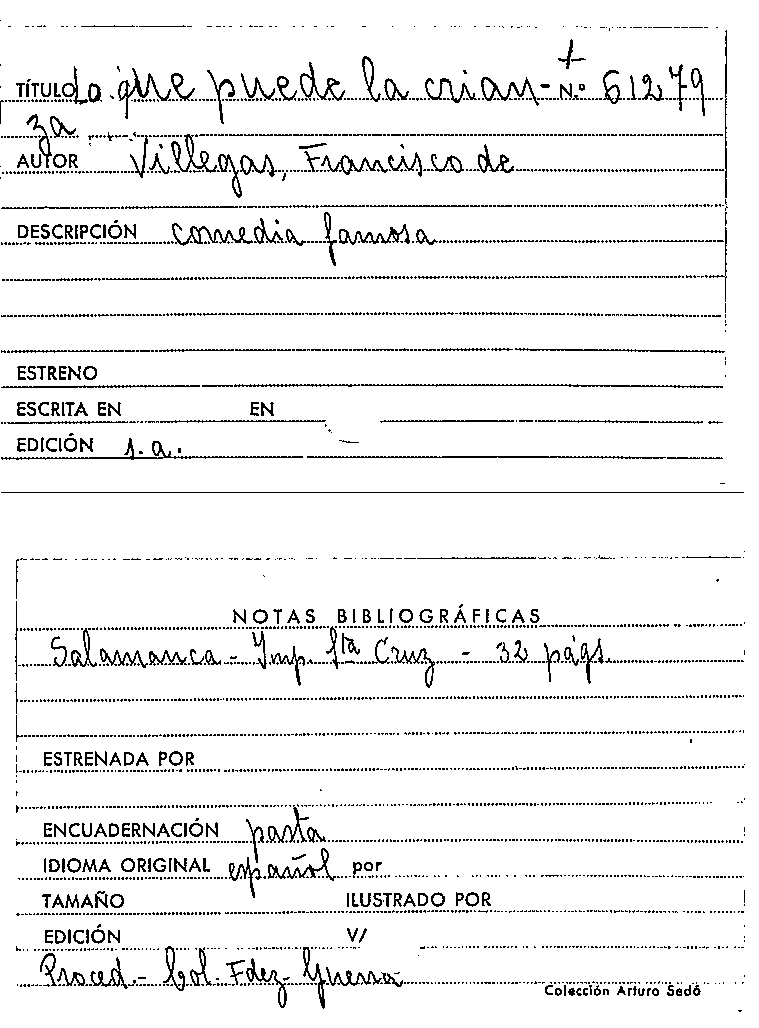 TÍTULO Lo que puede la crian- N.º 61279
za
AUTOR Villegas, Francisco de
DESCRIPCIÓN comedia famosa
ESTRENO
ESCRITA EN EN
EDICIÓN s.a.
NOTAS BIBLIOGRÁFICAS
Salamanca - Imp. Sta Cruz - 32 págs.
ESTRENADA POR
ENCUADERNACIÓN pasta
IDIOMA ORIGINAL español por
TAMAÑO ILUSTRADO POR
EDICIÓN V/
Proced.- Col. Fdez- Guerra
Colección Arturo Sedó